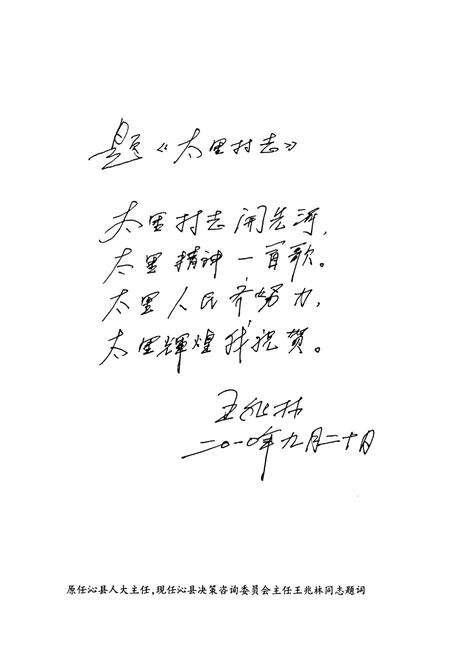 题《太里村志》
太里村志开先河，
太里精神一首歌。
太里人民齐努力，
太里輝煌我祝贺。
王兆林
二〇一〇年九月二十日
原任沁县人大主任，现任沁县决策咨询委员会主任王兆林同志题词